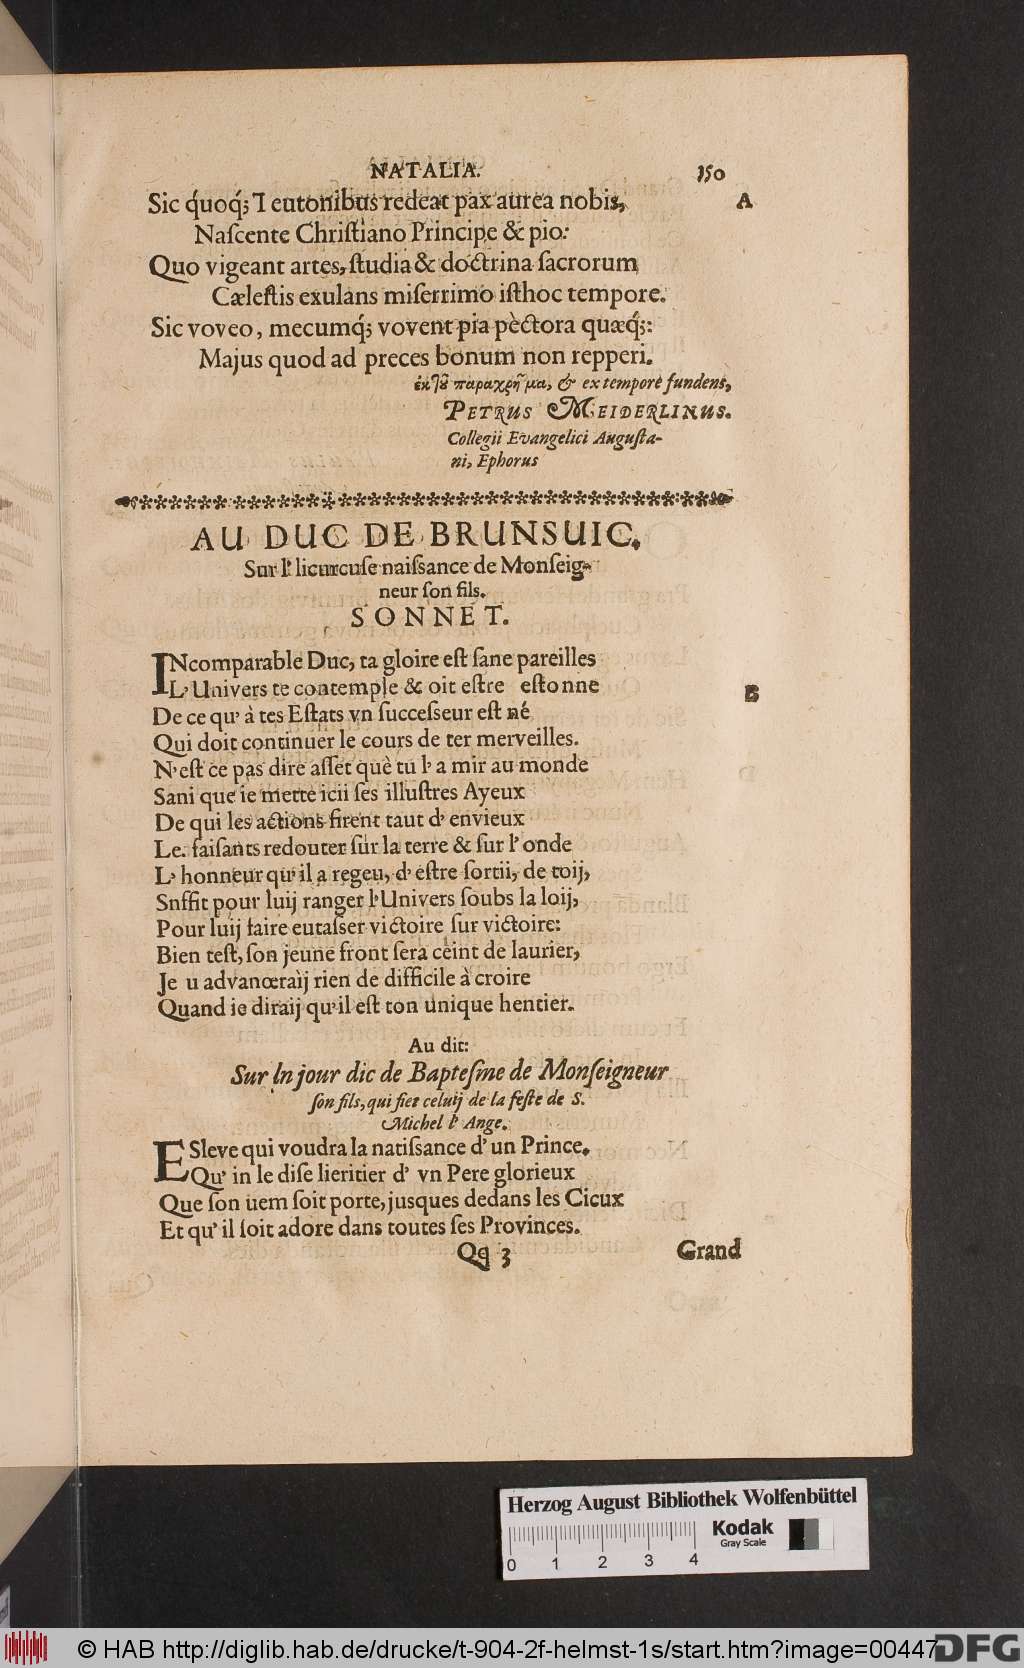 NATALIA. 150
Sic q́uoq́; Teutonibus redeat pax aurea nobis, A
Naſcente Chriſtiano Principe & pio:
Quo vigeant artes, ſtudia & doctrina ſacrorum
Cæleſtis exulans miſerrimo iſthoc tempore.
Sic voveo, mecumq́; vovent pia pèctora quæq́;:
Majus quod ad preces bonum non repperi.
ἐκ τȣ͂ παραχρῆμα, & ex tempore fundens,
PETRUS MEIDERLINUS.
Collegii Evangelici Auguſta-
ni, Ephorus
AU DUC DE BRUNSUIC.
Sur l' licurcuſe naiſsance de Monſeig-
neur ſon fils.
SONNET.
INcomparable Duc, ta gloire eſt ſane pareilles
L' Univers te contemple & oit eſtre eſtonne B
De ce qu' à tes Eſtats vn ſucceſseur eſt né
Qui doit continuer le cours de ter merveilles.
N' eſt ce pas dire aſſet què tu l' a mir au monde
Sani que ie mette icii ſes illuſtres Ayeux
De qui les actions firent taut d' envieux
Le. faiſants redouter ſur la terre & ſur l' onde
L' honneur qu' il a regeu, d' eſtre ſortii, de toij,
Snffit pour luij ranger l' Univers ſoubs la loij,
Pour luij faire eutaſser victoire ſur victoire:
Bien teſt, ſon jeune front ſera ceint de laurier,
Je u advancœraìj rien de difficile à croire
Quand ie diraij qu' il eſt ton unique hentier.
Au dit:
Sur ln jour dic de Bapteſme de Monſeigneur
ſon fils, qui fiet celuij de la feſte de S.
Michel l' Ange.
ESleve qui voudra la natiſsance d' un Prince.
Qu' in le diſe lieritier d' vn Pere glorieux
Que ſon uem ſoit porte, jusques dedans les Cicux
Et qu' il ſoit adore dans toutes ſes Provinces.
Qq 3 Grand
Herzog August Bibliothek Wolfenbüttel
Kodak
Gray Scale
0 1 2 3 4
© HAB http://diglib.hab.de/drucke/t-904-2f-helmst-1s/start.htm?image=00447
DFG